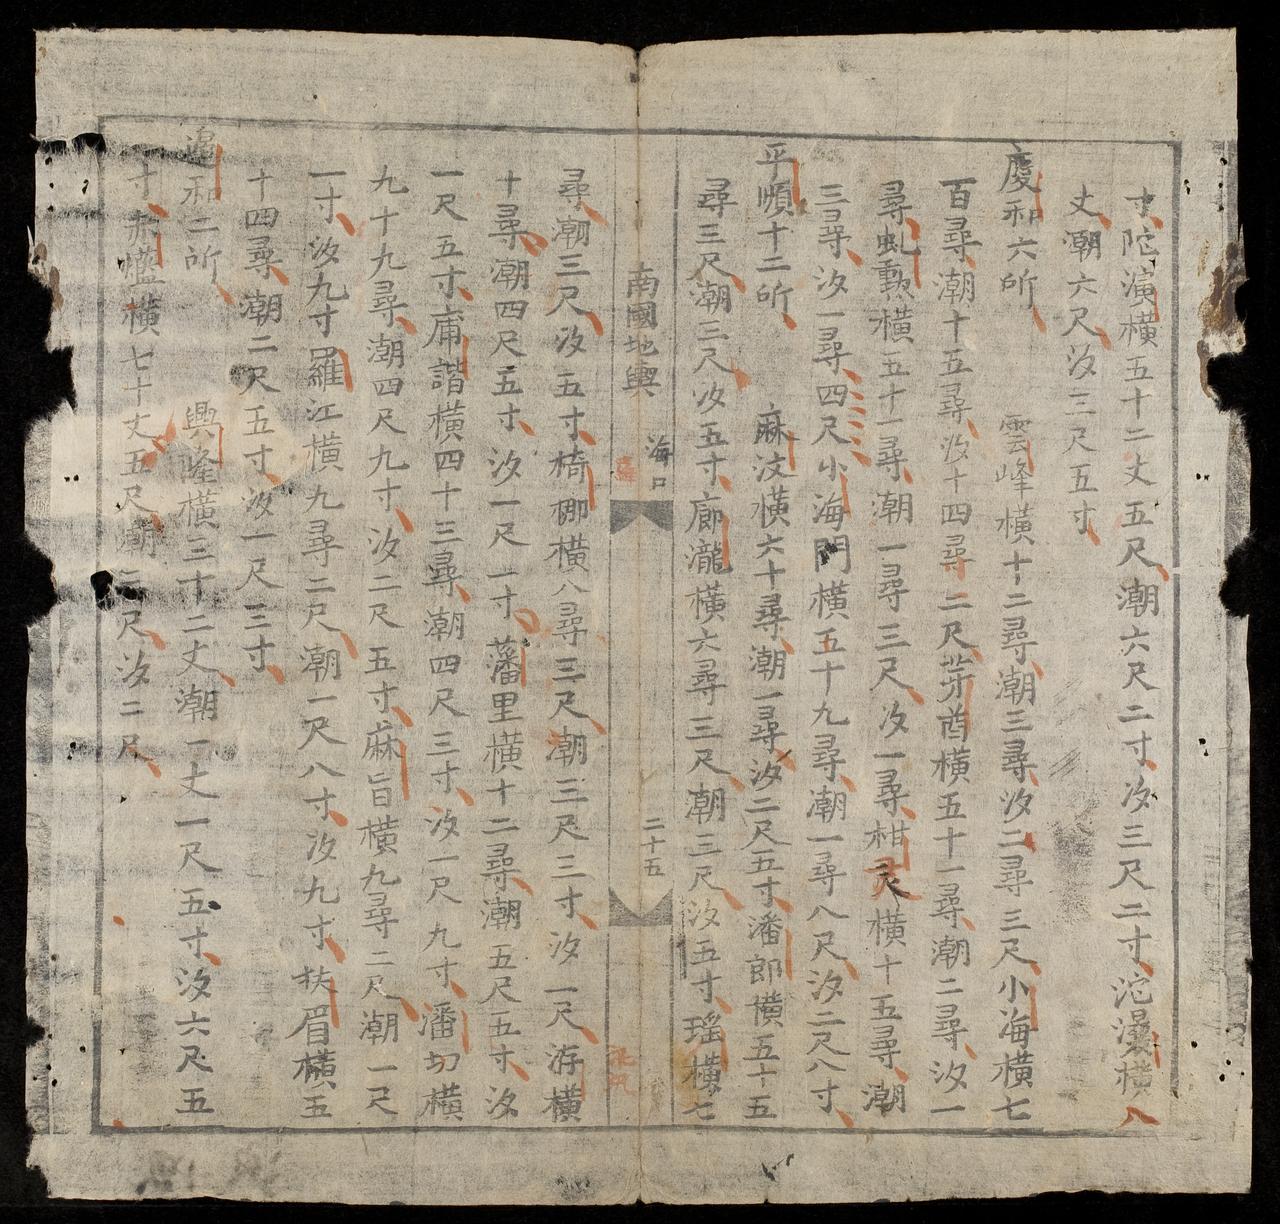 寸陀演橫五十二丈五尺潮六尺二寸汐三尺二寸沱漫橫八
丈潮六尺汐三尺五寸
慶和六所 雲峰橫十二尋潮三尋汐二尋三尺小海橫七
百尋潮十五尋汐十四尋二尺芽酋橫五十一尋潮二尋汐一
尋虬勲橫五十一尋潮一尋三尺汐一尋柑灵橫十五尋潮
三尋汐一尋四尺小海門橫五十九尋潮一尋八尺汐二尺八寸
平順十二所 麻汶橫六十尋潮一尋汐二尺五寸潘郎橫五十五
尋三尺潮三尺汐五寸廊瀧橫六尋三尺潮三尺汐五寸瑶橫七
南國地輿 海口 二十五
尋潮三尺汐五寸椅梛橫八尋三尺潮三尺三寸汐一尺游橫
十尋潮四尺五寸汐一尺一寸藩里橫十二尋潮五尺五寸汐
一尺五寸庸諧橫四十三尋潮四尺三寸汐一尺九寸潘切橫
九十九尋潮四尺九寸汐二尺五寸麻旨橫九尋二尺潮一尺
一寸汐九寸羅江橫九尋二尺潮一尺八寸汐九寸扶眉橫五
十四尋潮二尺五寸汐一尺三寸
邊和二所 興隆橫三十二丈潮一丈一尺五寸汐六尺五
寸赤爁橫七十丈五尺潮三尺汐二尺